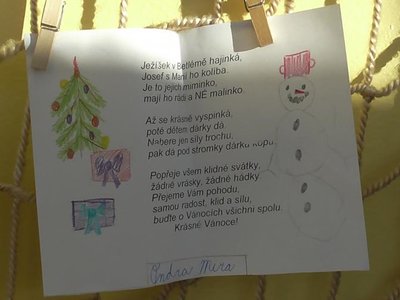 Ježíšek v Betlémě hajinká,
Josef s Marií ho kolíbá.
Je to jejich miminko,
mají ho rádi a NĚ malinko.
Až se krásně vyspinká,
poté dětem dárky dá
Nabere jen síly trochu,
pak dá pod stromky dárků kopu.
Popřeje všem klidné svátky,
žádné vrásky, žádné hádky
Přejeme Vám pohodu,
samou radost, klid a sílu,
buďte o Vánocích všichni spolu.
Krásné Vánoce!
Ondra Míra